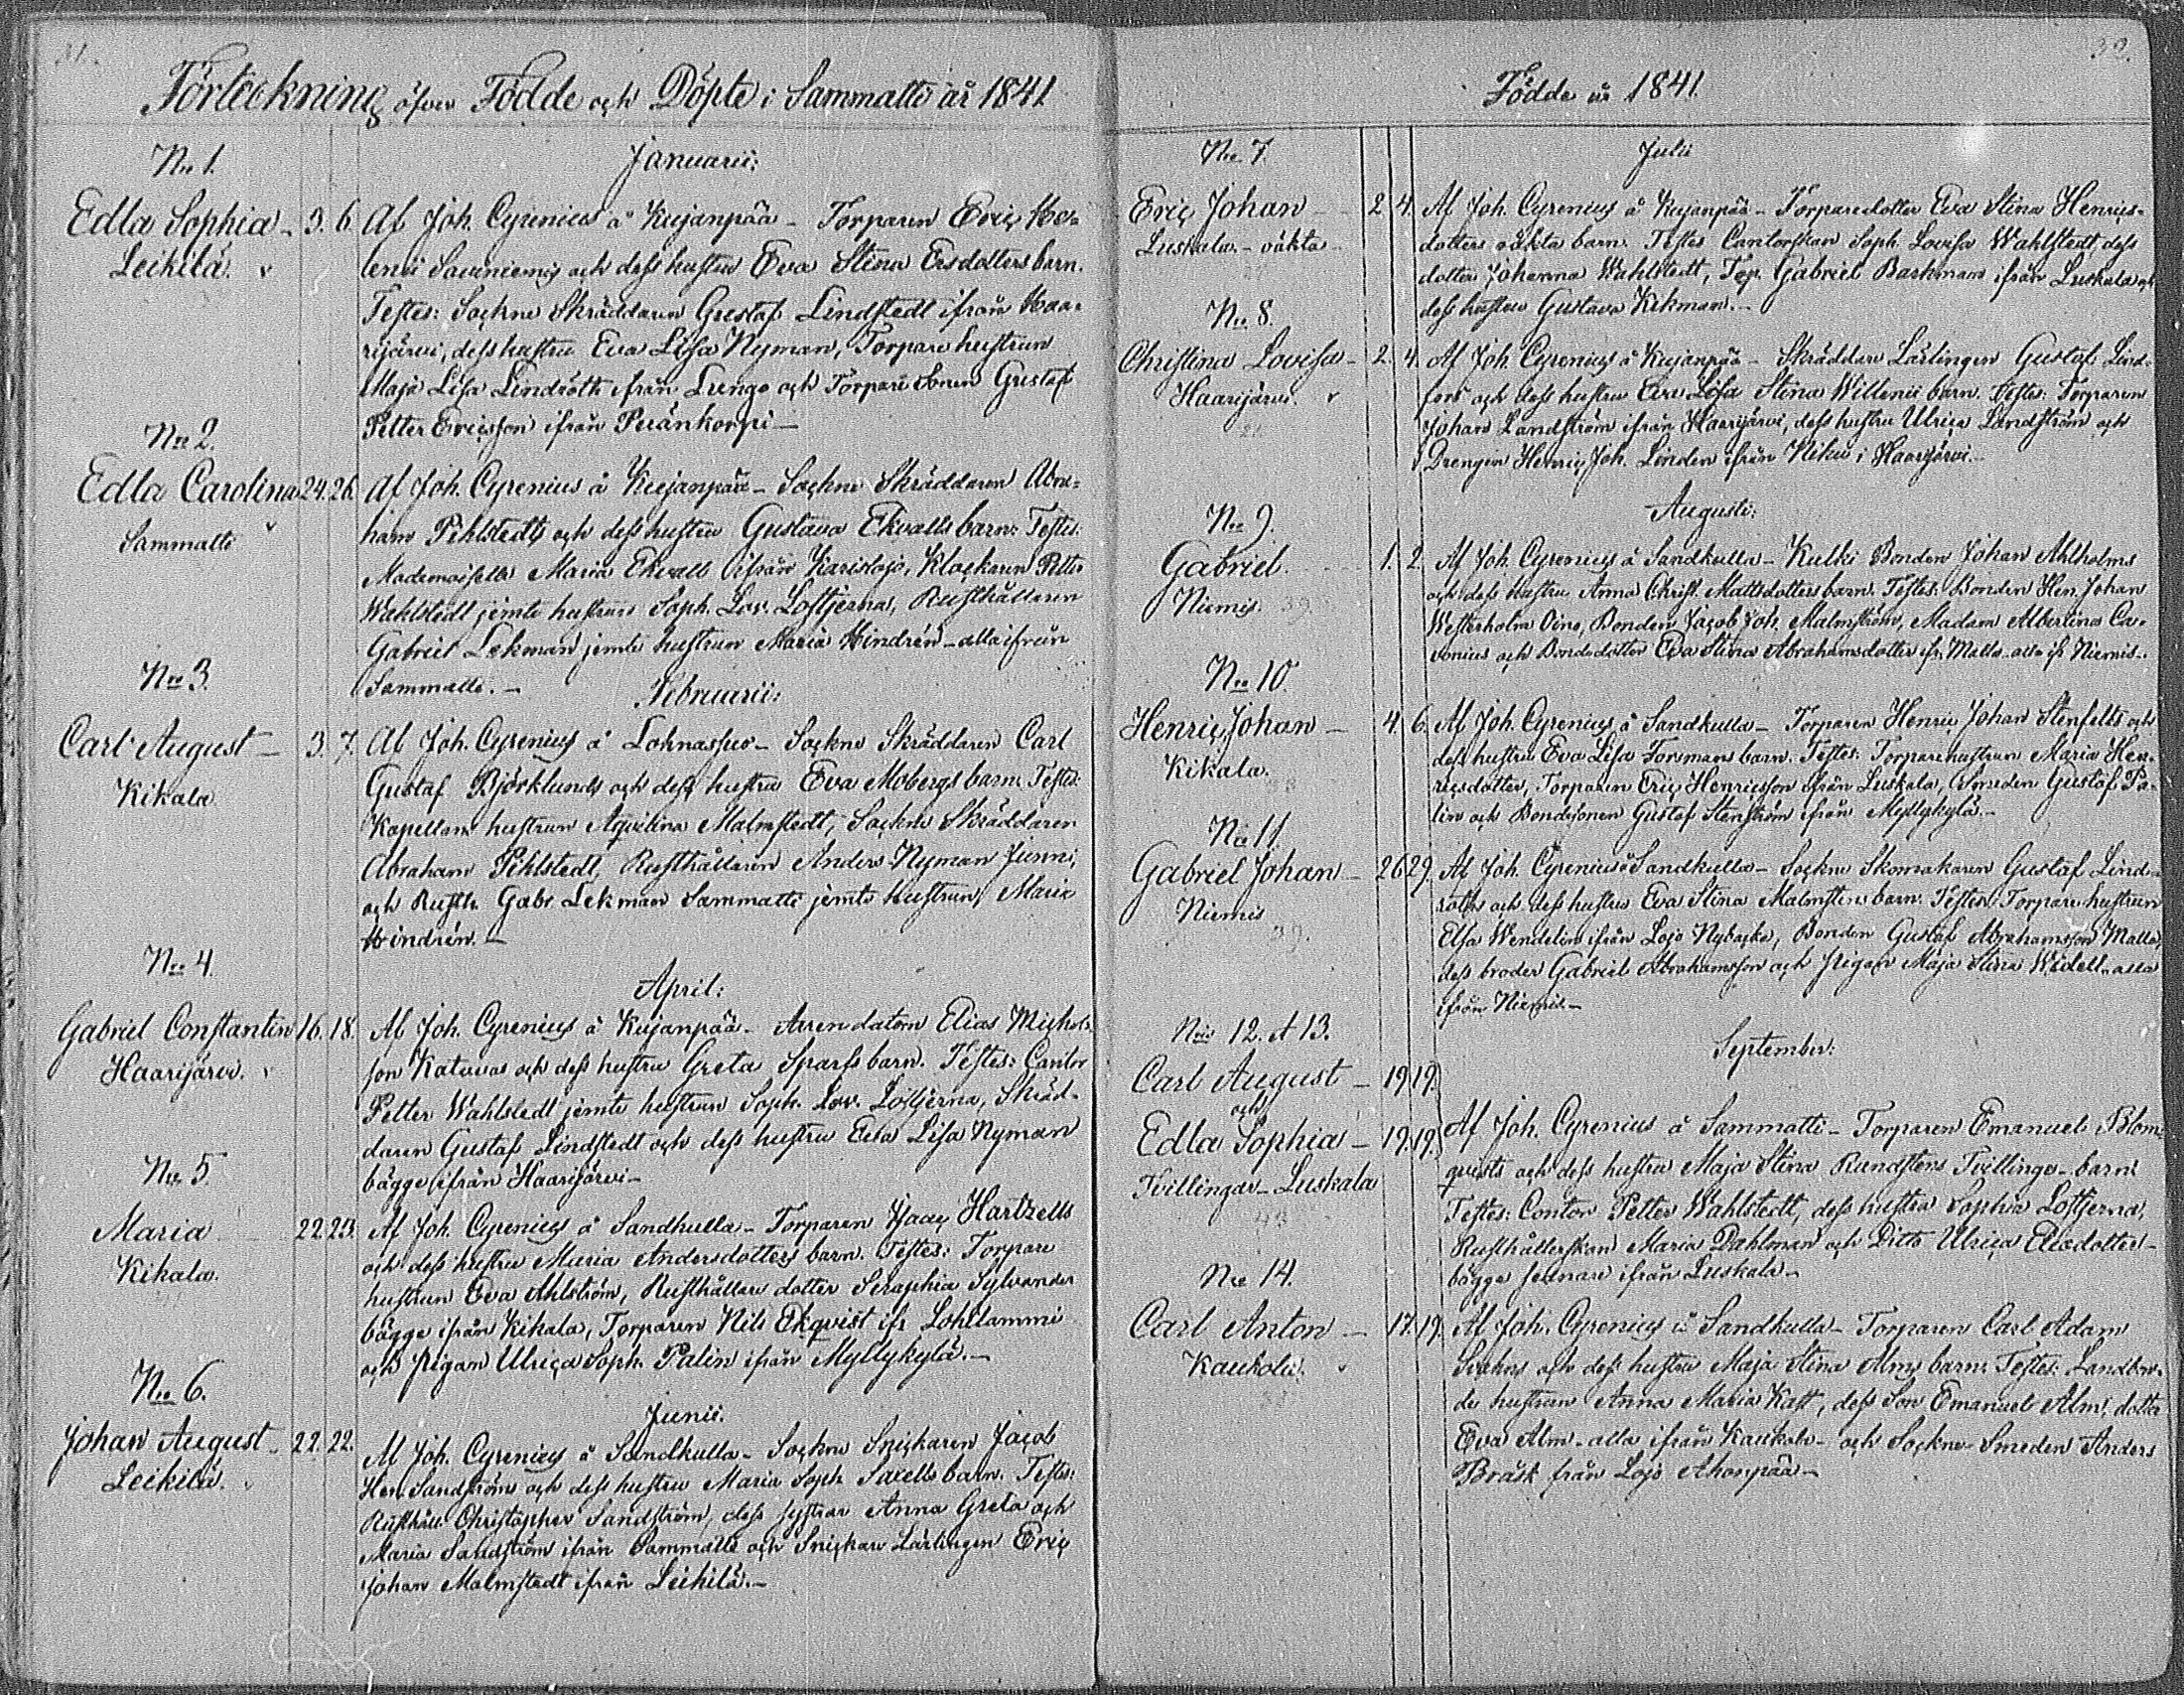 31.
Förteckning öfver Födde och Döpte i Sammatti år 1841
No 1.
Januarii:
Edla Sophia - 3. 6.
Leikilä.
Af Joh. Cyrenius å Kujanpää - Torparen Eric He-
lenii Sauniemis och dess hustru Eva Stina Ersdotters barn.
Testes: Sockne Skräddaren Gustaf Lindstedt ifrån Haa-
rijärvi, dess hustru Eva Lisa Nyman, Torpare hustrun
Maja Lisa Lindroth ifrån Lungo och Torpare Sonen Gustaf
Petter Ericsson ifrån Peränkorpi -
No 2.
Edla Carolina 24. 26.
Sammatti
Af Joh. Cyrenius å Kujanpää - Sockne Skräddaren Abra-
ham Pihlstedts och dess hustru Gustava Ekvalls barn. Testes:
Mademoiselle Maria Ekvall ifrån Karislojo, Klockaren Petter
Wahlstedt jemte hustrun Soph. Lov. Löftjerna, Rusthållaren
Gabriel Lekman jemte hustrun Maria Hindrén - alla ifrån
Sammatti. -
Februarii:
No 3.
Carl August - 3. 7.
Kikala
Af Joh. Cyrenius å Lohnassuo - Sockne Skräddaren Carl
Gustaf Björklunds och dess hustru Eva Mobergs barn. Testes:
Kapellans hustrun Aqvilina Malmstedt, Sockne Skräddaren
Abraham Pihlstedt, Rusthållaren Anders Nyman Junni,
och Rusth. Gabr Lekman Sammatti jemte hustrun Maria
Hindrén. -
No 4.
April:
Gabriel Constantin 16. 18.
Haarijärvi.
Af Joh. Cyrenius å Kujanpää - Arrendatorn Elias Michels-
son Katavas och dess hustru Greta Sparfs barn. Testes: Cantor
Petter Wahlstedt jemte hustrun Soph. Lov. Löftjerna, Skräd-
daren Gustaf Lindstedt och dess hustru Eva Lisa Nyman
bägge ifrån Haarijärvi -
No 5.
Maria 22. 23.
Kikala.
Af Joh. Cyrenius å Sandkulla - Torparen Isaac Hartzells
och dess hustru Maria Andersdotters barn. Testes: Torpare
hustrun Eva Ahlström, Rusthållare dotter Seraphia Sylvander
bägge ifrån Kikala, Torparen Nils Ekqvist ifr Lohilammi
och pigan Ulrica Soph. Palin ifrån Myllykylä. -
No 6.
Junii.
Johan August - 22. 22.
Leikilä.
Af Joh. Cyrenius å Sandkulla - Sockne Snickaren Jacob
Hen. Sandströms och dess hustru Maria Soph Saxells barn. Testes:
Rusthåll. Christopher Sandström, dess systrar Anna Greta och
Maria Sandström ifrån Sammatti och Snickare Lärlingen Eric
Johan Malmstedt ifrån Leikilä. -
32.
Födde år 1841.
No 7.
Julii
Eric Johan - 2. 4.
Luskala - oäkta -
Af Joh. Cyrenius å Kujanpää - Torparedotter Eva Stina Henrics-
dotters oäkta barn. Testes Cantorskan Soph. Lovisa Wahlstedt, dess
dotter Johanna Wahlstedt, Torp. Gabriel Backman ifrån Luskala och
dess hustru Gustava Ekman. -
No 8.
Christina Lovisa - 2. 4.
Haarijärvi.
Af Joh. Cyrenius å Kujanpää - Skräddare Lärlingen Gustaf Lind-
fors och dess hustru Eva Lisa Stina Willenii barn. Testes: Torparen
Johan Landström ifrån Haarijärvi, dess hustru Ulrica Landström och
Drengen Henric Joh. Linden ifrån Niku i Haarijärvi. -
Augusti:
No 9.
Gabriel 1. 2.
Niemis. 39.
Af Joh. Cyrenius å Sandkulla - Kulki Bonden Johan Ahlholms
och dess hustru Anna Christ. Mattsdotters barn. Testes: Bonden Hen. Johan
Westerholm Oino, Bonden Jacob Joh. Malmström, Madam Albertina Ca-
vonius och Bondedotter Eva Stina Abrahamsdotter ifr. Malla - alla ifr Niemis -
No 10.
Henric Johan - 4. 6.
Kikala.
Af Joh. Cyrenius å Sandkulla - Torparen Henric Johan Stenfelts och
dess hustru Eva Lisa Forsmans barn. Testes: Torparehustrun Maria Hen-
ricsdotter, Torparen Eric Henricsson ifrån Luskala, Smeden Gustaf Pa-
lin och Bondesonen Gustaf Stenström ifrån Myllykylä. -
No 11.
Gabriel Johan - 26. 29.
Niemis
39.
Af Joh. Cyrenius å Sandkulla - Sockne Skomakaren Gustaf Lind-
roths och dess hustru Eva Stina Malmstens barn. Testes: Torpare hustrun
Elsa Wendelin ifrån Lojo Nybacka, Bonden Gustaf Abrahamsson Malla,
dess broder Gabriel Abrahamsson och pigan Maja Stina Widell - alla
ifrån Niemis -
No 12. et 13.
September:
Carl August - 19. 19.
och
Edla Sophia - 19. 19.
Tvillingar - Luskala
43
Af Joh. Cyrenius å Sammatti - Torparen Emanuel Blom-
qvists och dess hustru Maja Stina Rundstens Tvillinge - barn.
Testes: Cantor Petter Wahlstedt, dess hustru Sophia Löftjerna,
Rusthållerskan Maria Dahlman och Ditto Ulrica Ericsdotter -
bägge sednare ifrån Luskala -
No 14.
Carl Anton - 17. 19.
Kaukola.
Af Joh. Cyrenius å Sandkulla - Torparen Carl Adam
och dess hustru Maja Stina Alms barn. Testes: Landbon-
de hustrun Anna Maria Katt, dess Son Emanuel Alm, dotter
Eva Alm - alla ifrån Kaukola - och Sockne - Smeden Anders
Bräsk från Lojo Ahonpää -